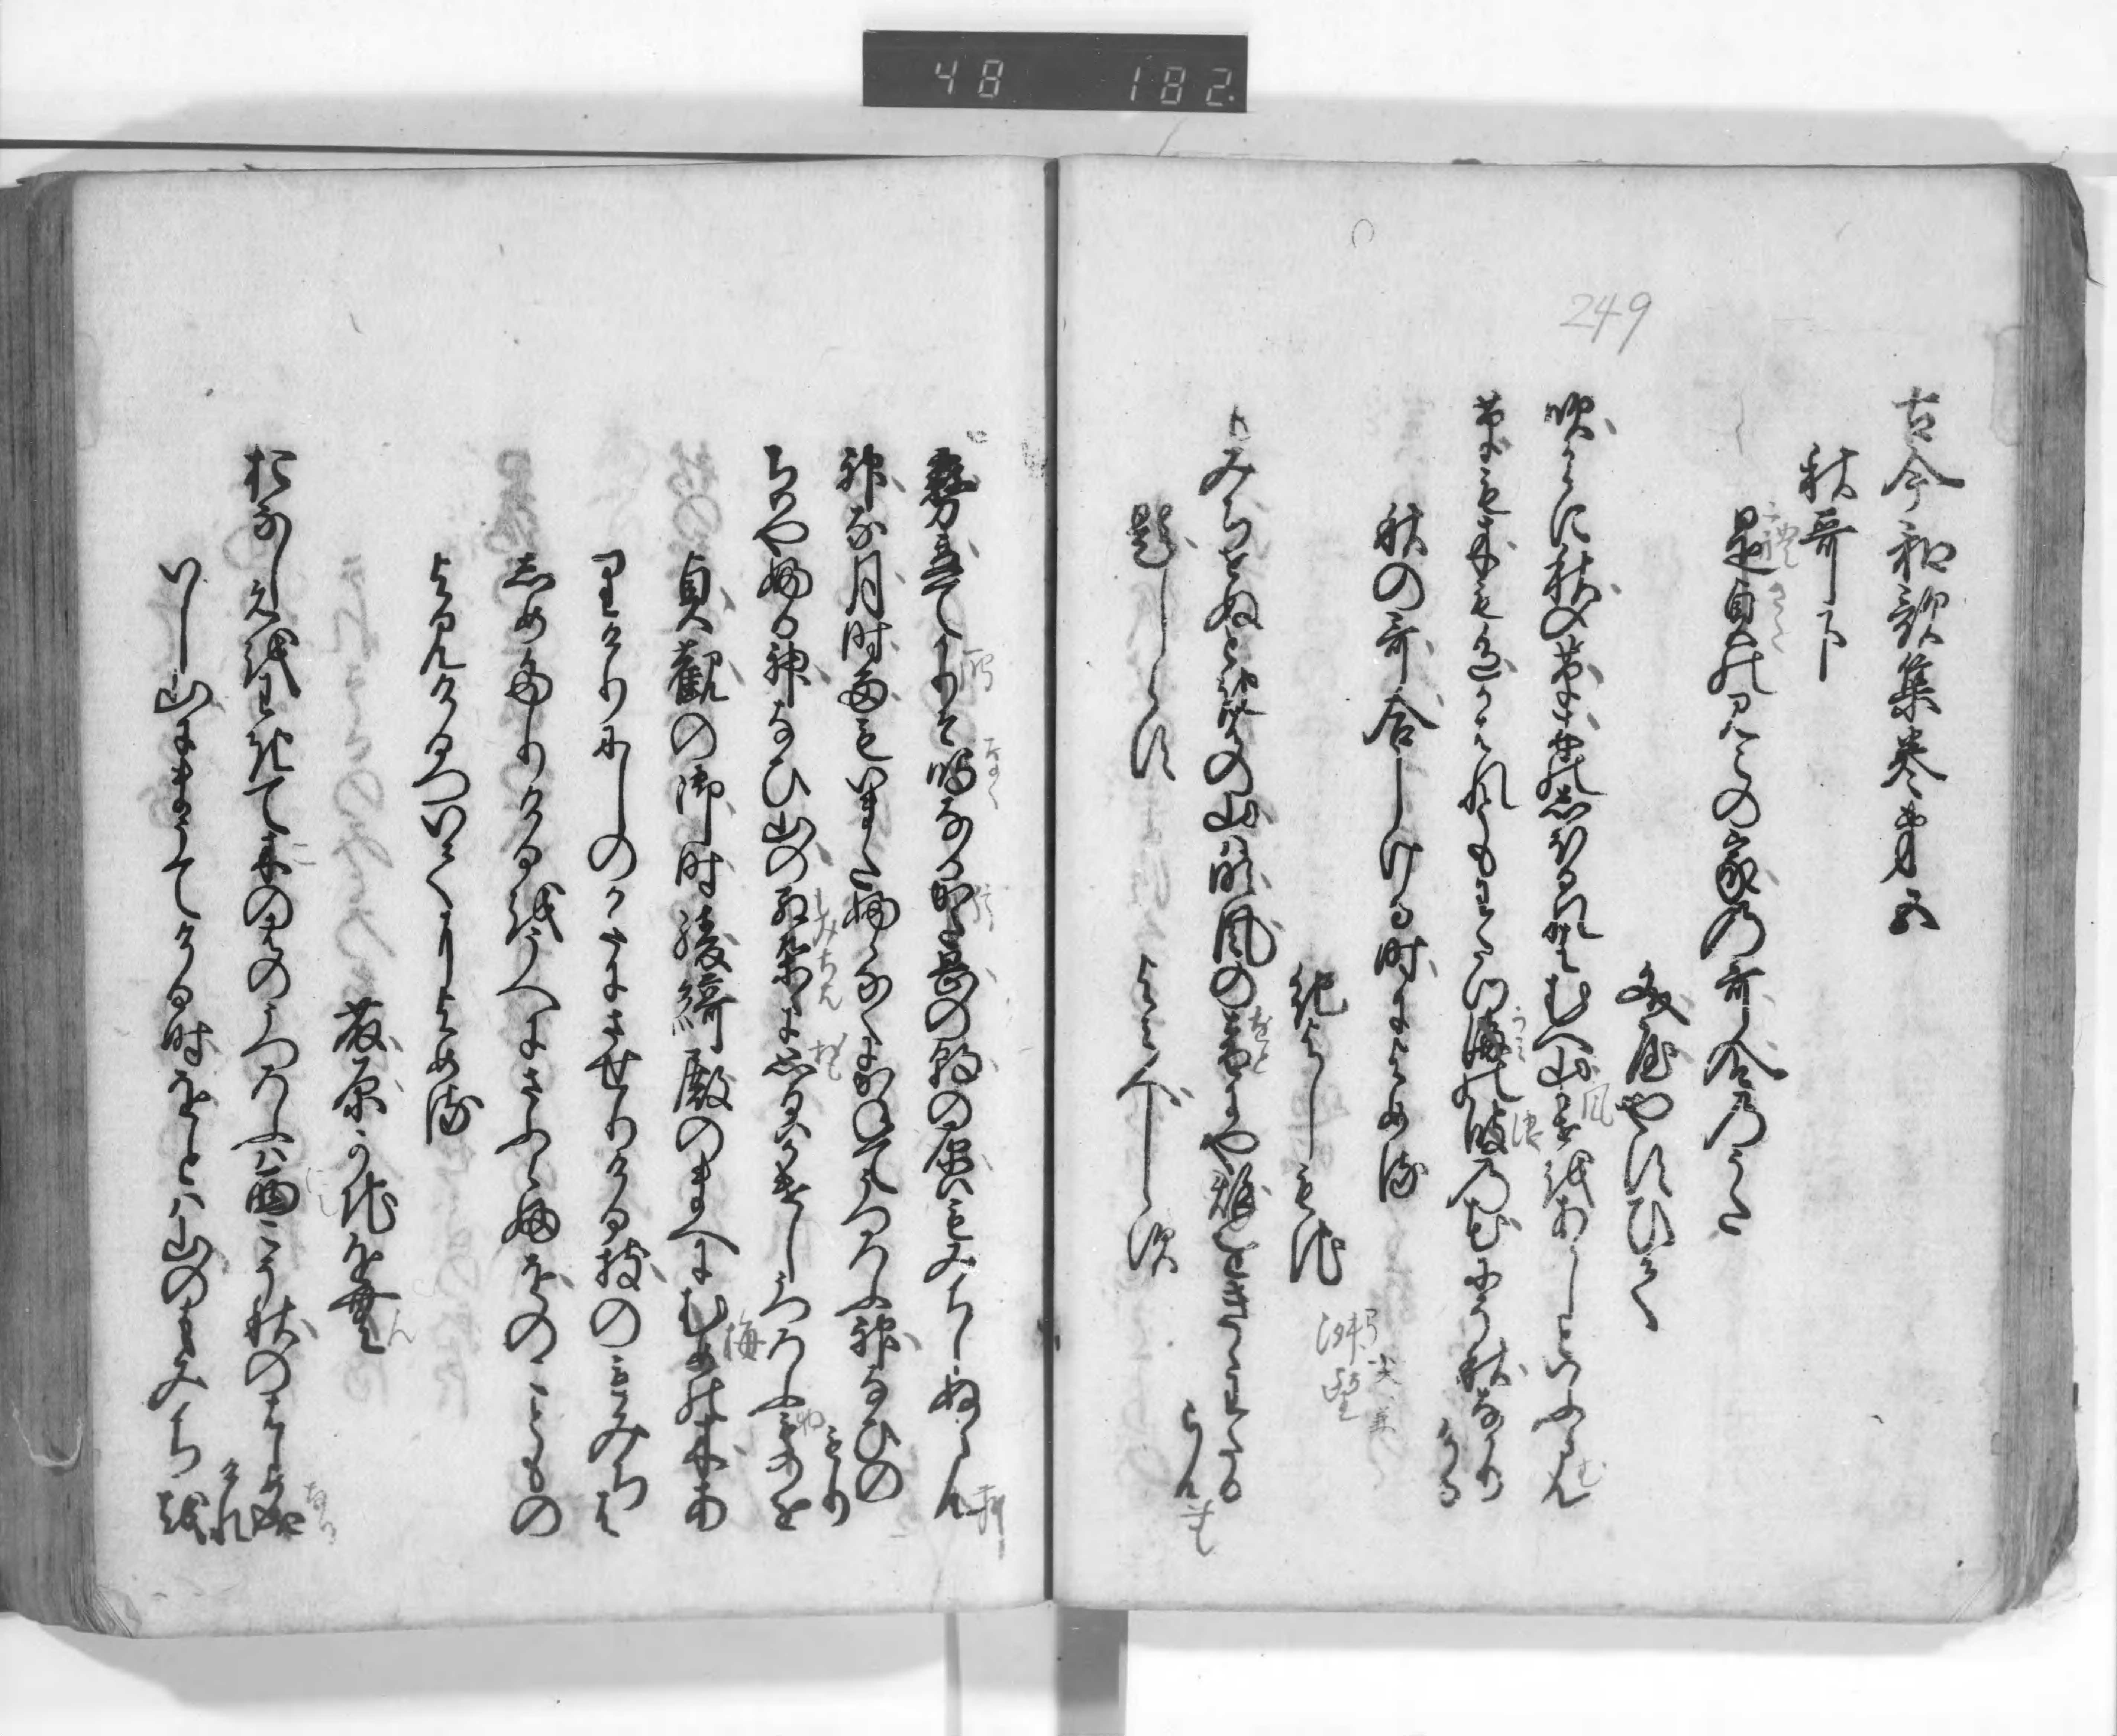 48 182
249
古今和歌集巻第五
秋哥下
是貞のみこの家乃哥合乃うた
文屋やすひて
吹からに秋の草木のしほるれはむへ山風をあらしといふらん
草も木も色かはれともわたつ海の波乃花にそ秋なかり
ける
秋の哥合しける時によめる
紀よしもち
もみちせぬときはの山は吹風の音にや秋をきゝわたる
らん
題しらす よみ人しらす
霧立て鴈そ鳴なる片岡の朝の原はもみちしぬらん
神な月時雨もいまたふらなくにかねてうつろふ神なひの
もり
ちはやふる神なひ山の紅葉に思ひはかけしうつろふものを
貞観の御時綾綺殿のまへにむめの木あ
りけりにしのかたにさせりける枝のもみちは
しめたりけるをうへにさふらふをのこともの
よみけるついてによめる
藤原かちをむ
おなしえをわきて木のはのうつろふは西こそ秋のはしめ
けれ
いし山にまうてける時をとは山のもみちを